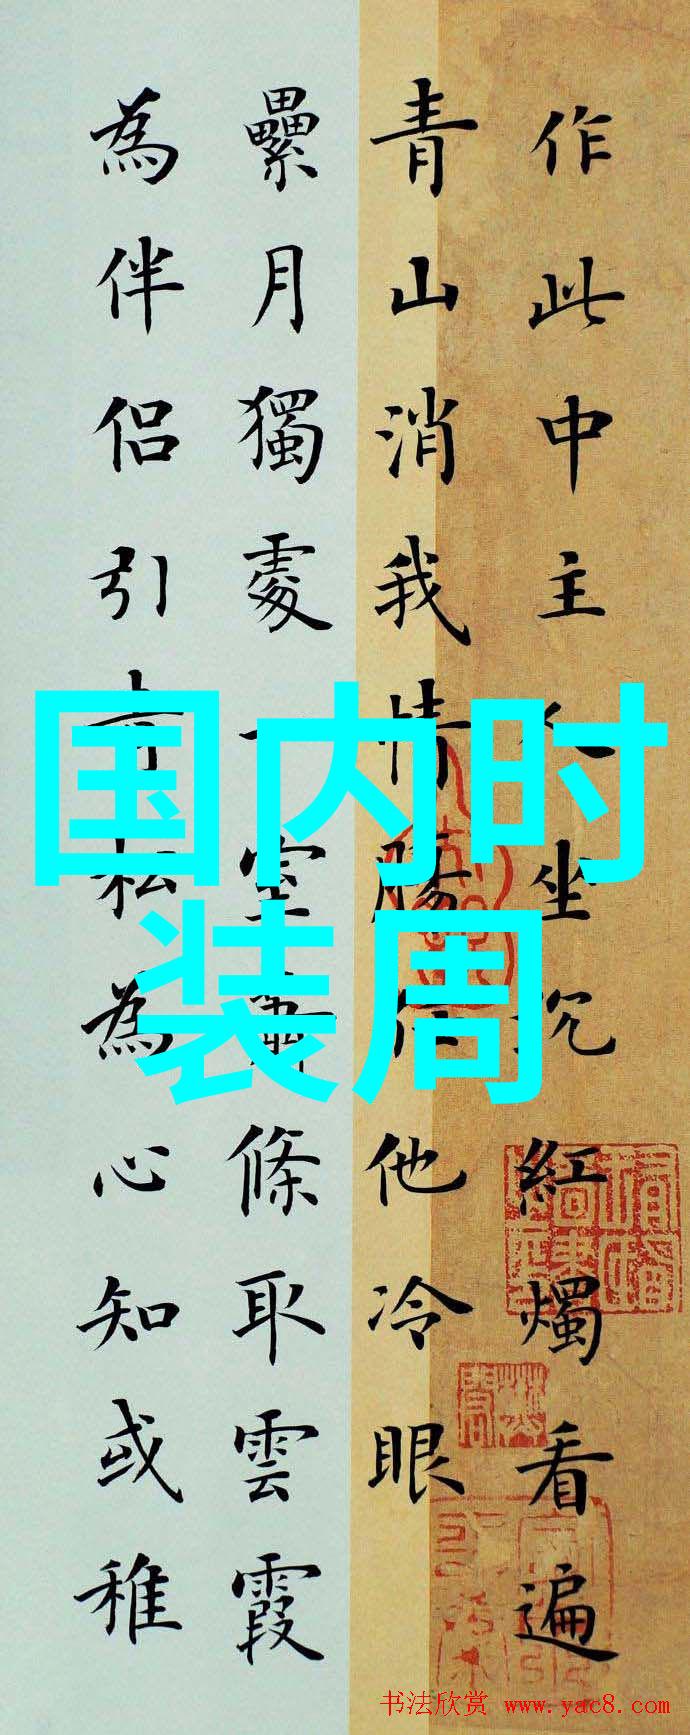 作此中主人坐沉紅燭看遍
青山消我情腸任他冷眼
纍月獨處一室蕭條取雲霞
為伴侶引青松為心知或稚
国内时
装周
书法欣赏 www.yac8.com